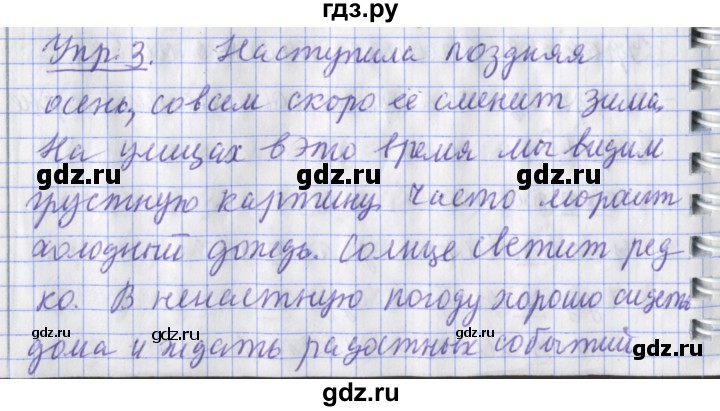 гдз.ру
Упр. 3. Наступила поздняя
осень, совсем скоро её сменит зима.
На улицах в это время мы видим
gdz.ru gdz.ru gdz.ru
грустную картину. Часто моросит
холодный дождь. Солнце светит ред
gdz.ru gdz.ru
ко. В ненастную погоду хорошо сидеть
gdz.ru gdz.ru gdz.ru gdz.ru
дома и ждать радостных событий.
gdz.ru